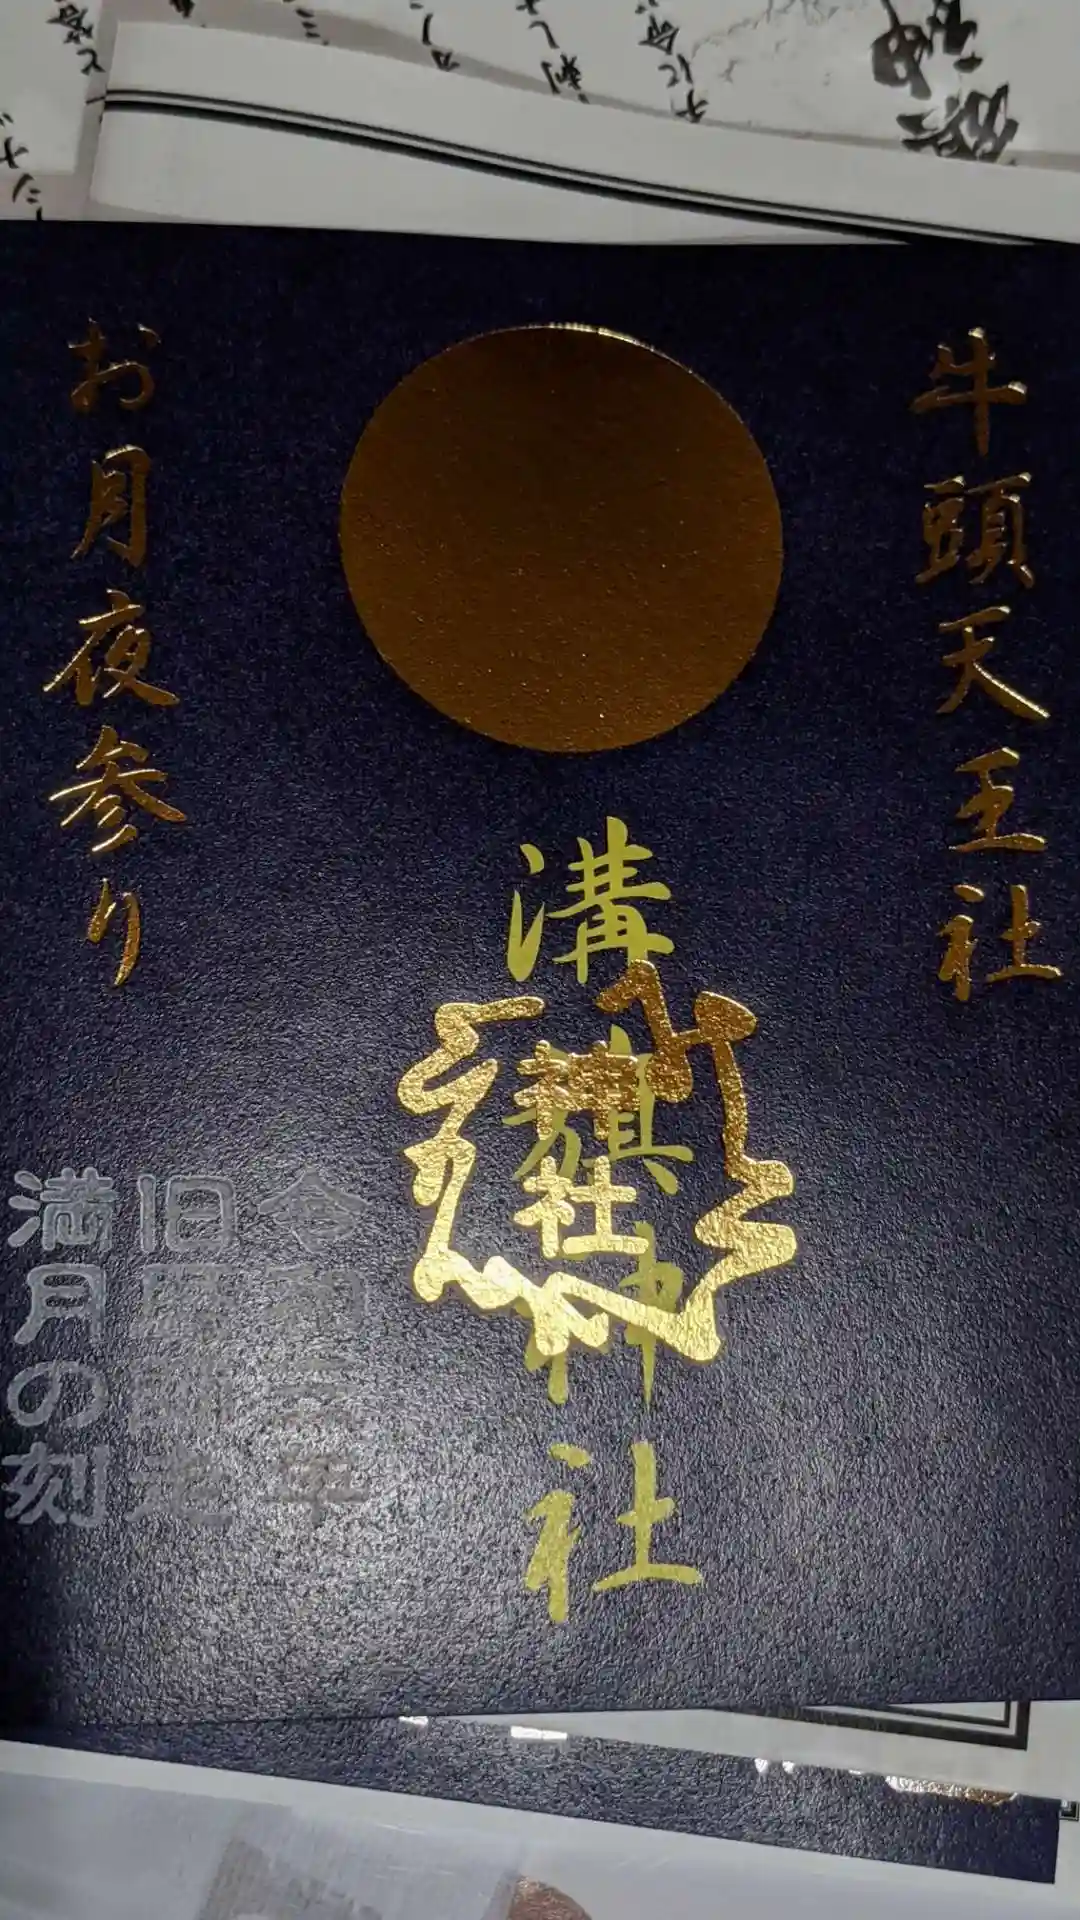 牛頭天王社
溝旗神社
神社
お月夜参り
令和三年
旧暦師走
満月の刻